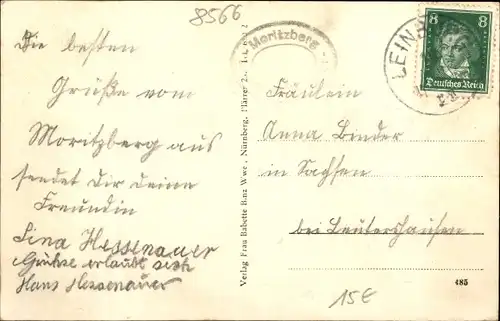 8566
Die besten
Grüße vom
Moritzberg aus
sendet Dir Deine
Freundin
Lina Hessenauer
Grüße erlaubt sich
Hans Hessenauer
Moritzberg
Verlag Frau Babette Benz Wwe., Nürnberg, Plärrer
LEIN
8 8
Deutsches Reich
Fräulein
Anna Binder
in Sachsen
bei Leutershausen
485
15€